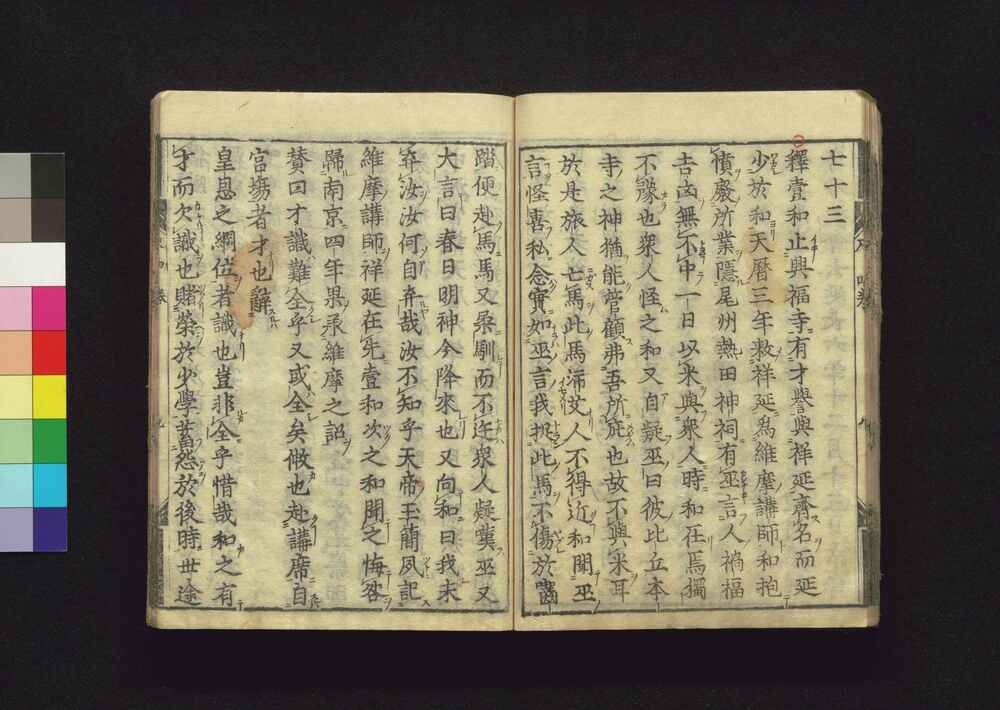 七十三
釋壹和止興福寺有才譽與祥延齊名而延
少於和天曆三年敕祥延爲維摩講師和抱
憤廢所業隱尾州熱田神祠有巫言人禍福
吉凶無不中一日以米與衆人時和在焉獨
不豫也衆人怪之和又自疑巫曰彼比丘本
寺之神猶能營顧弗吾所庇也故不與米耳
於是旅人亡馬此馬沛艾人不得近和聞巫
言怪喜私念實如巫言我扠此馬不傷於齧
踏便赴馬馬又柔馴而不迕衆人疑異巫又
大言曰春日明神今降來也又向和曰我未
弃汝汝何自弃哉汝不知乎天帝王簡夙記
維摩講師祥延在先壹和次之和聞之悔吝
歸南京四年果承維摩之詔
賛曰才識難全乎又或全矣儆也赴講席自
宮塲者才也辭
皇恩之綱位者識也豈非全乎惜哉和之有
才而欠識也賭榮於少學蓄怨於後時世途